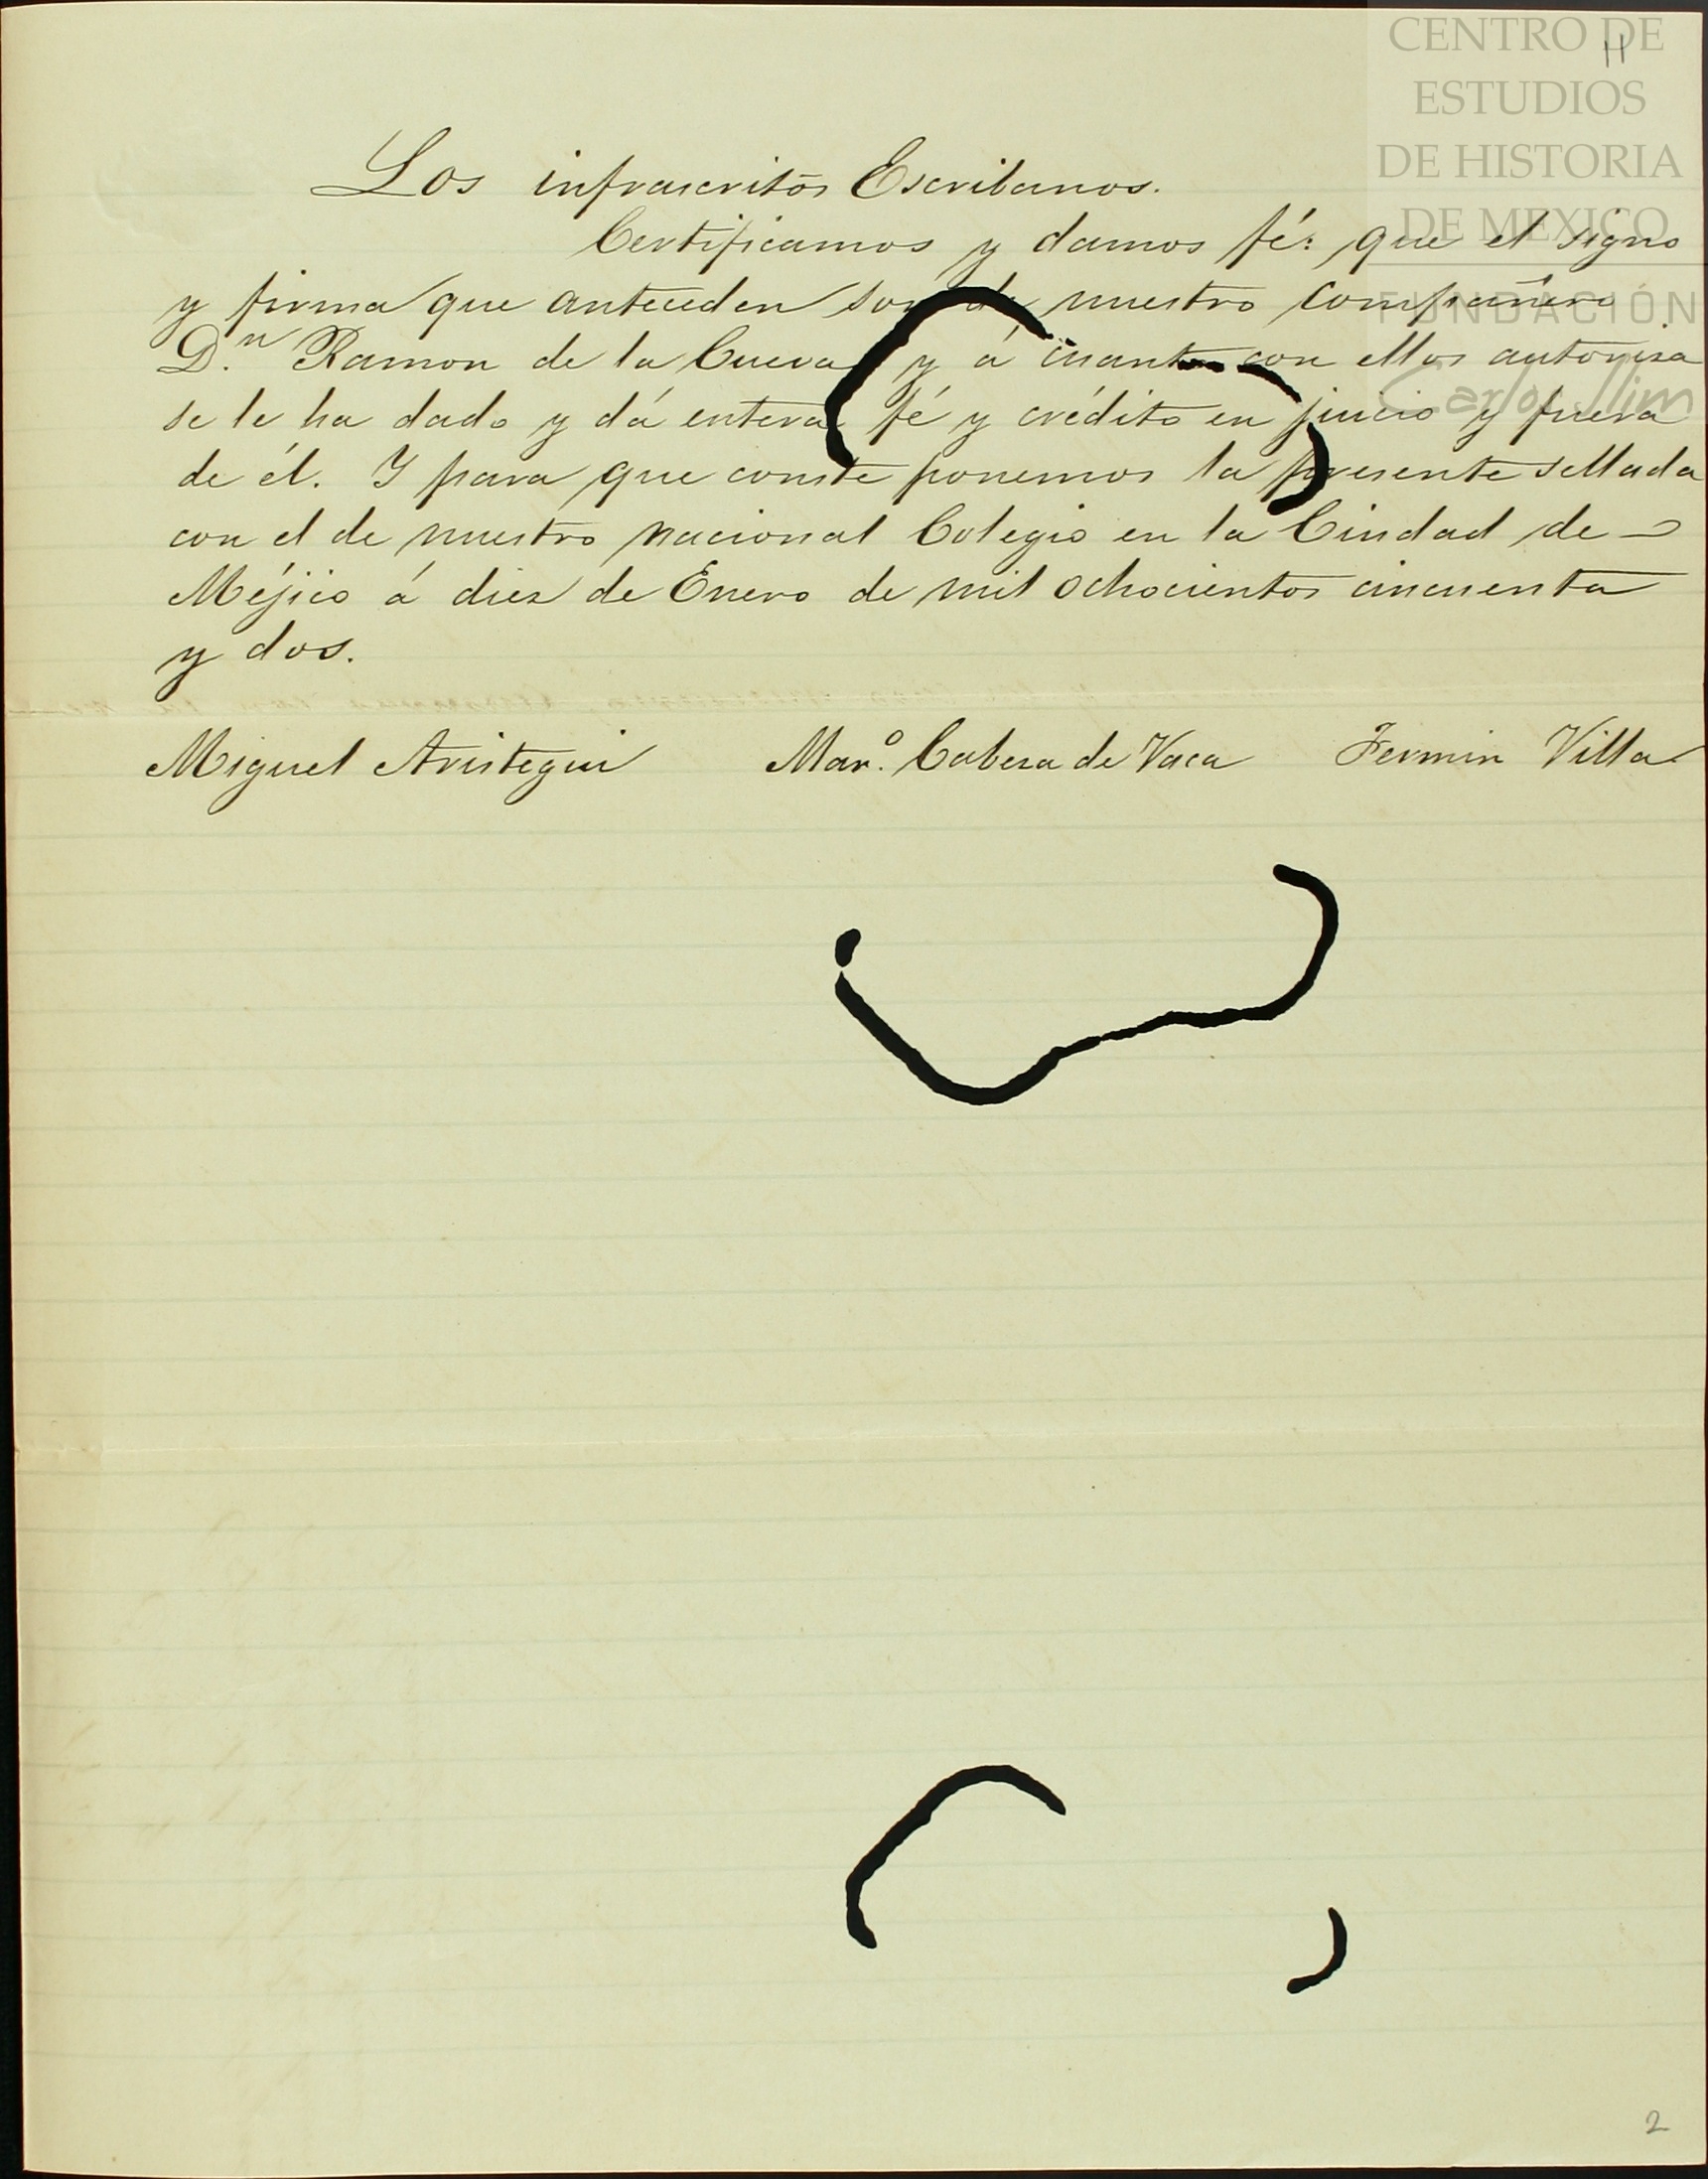 CENTRO DE
ESTUDIOS
DE HISTORIA
DE MEXICO
FUNDACIÓN
Carlos Slim
11
Los infrascritos Escribanos.
Certificamos y damos fé: que el signo
y firma que anteceden son de nuestro compañero
D.n Ramon de la Cueva y á cuanto con ellos autoriza
se le ha dado y dá entera fé y crédito en juicio y fuera
de él. Y para que conste ponemos la presente sellada
con el de nuestro nacional Colegio en la Ciudad de
Méjico á diez de Enero de mil ochocientos cincuenta
y dos.
Miguel Aristegui Mar.o Cabeza de Vaca Fermin Villa
2